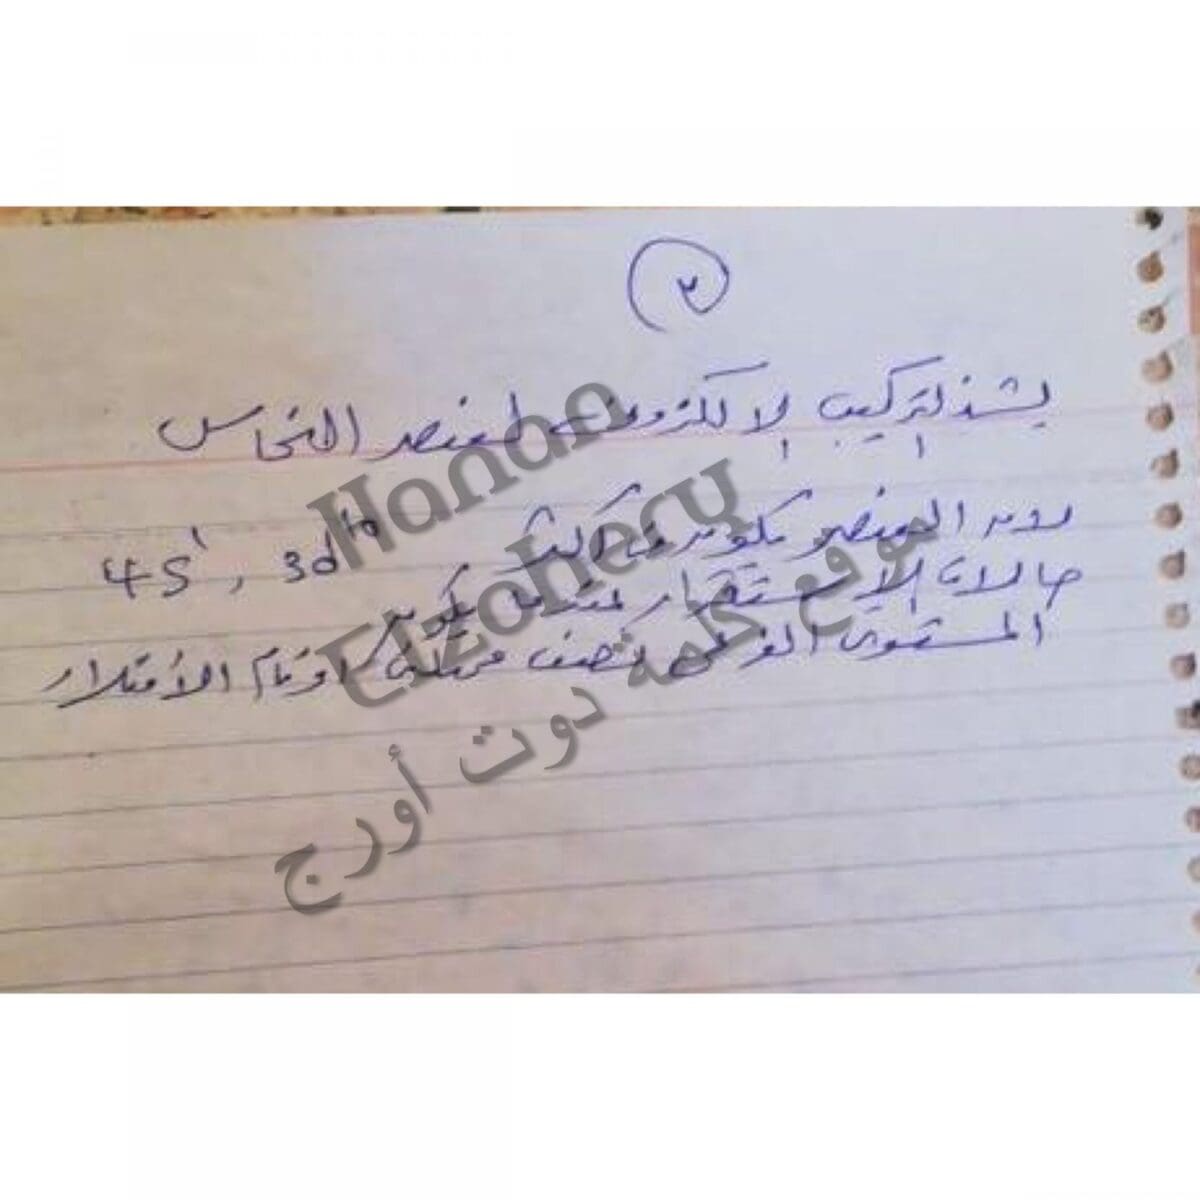 ٢
يشذ التركيب الإلكتروني لعنصر النحاس
لأن العنصر يكون في أكثر 4S¹ , 3d¹⁰
حالات الاستقرار عندما يكون
المستوى الفرعي نصف ممتلئ او تام الأمتلاء
Hanan
Elzohery
موقع كلمة دوت أورج